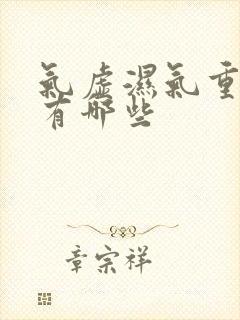 氣虛濕氣重
有哪些
章宗祥